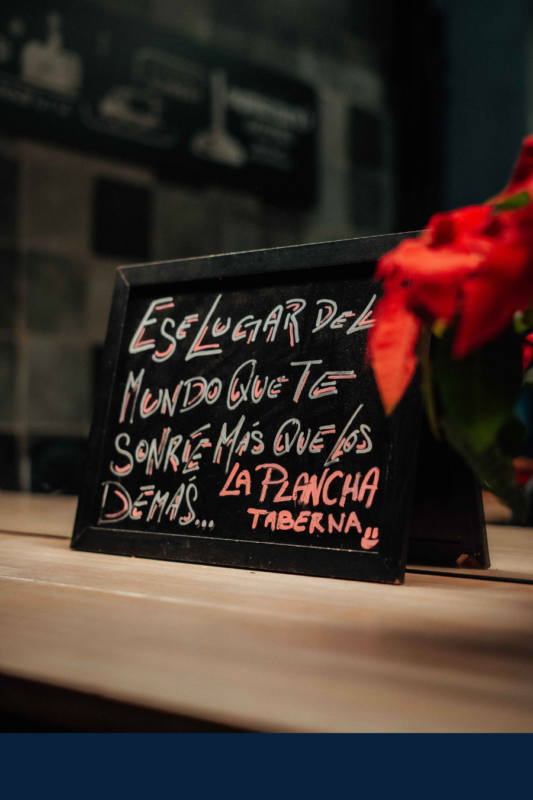 ESE LUGAR DEL
MUNDO QUE TE
SONRÍE MÁS QUE LOS
DEMÁS...
LA PLANCHA
TABERNA